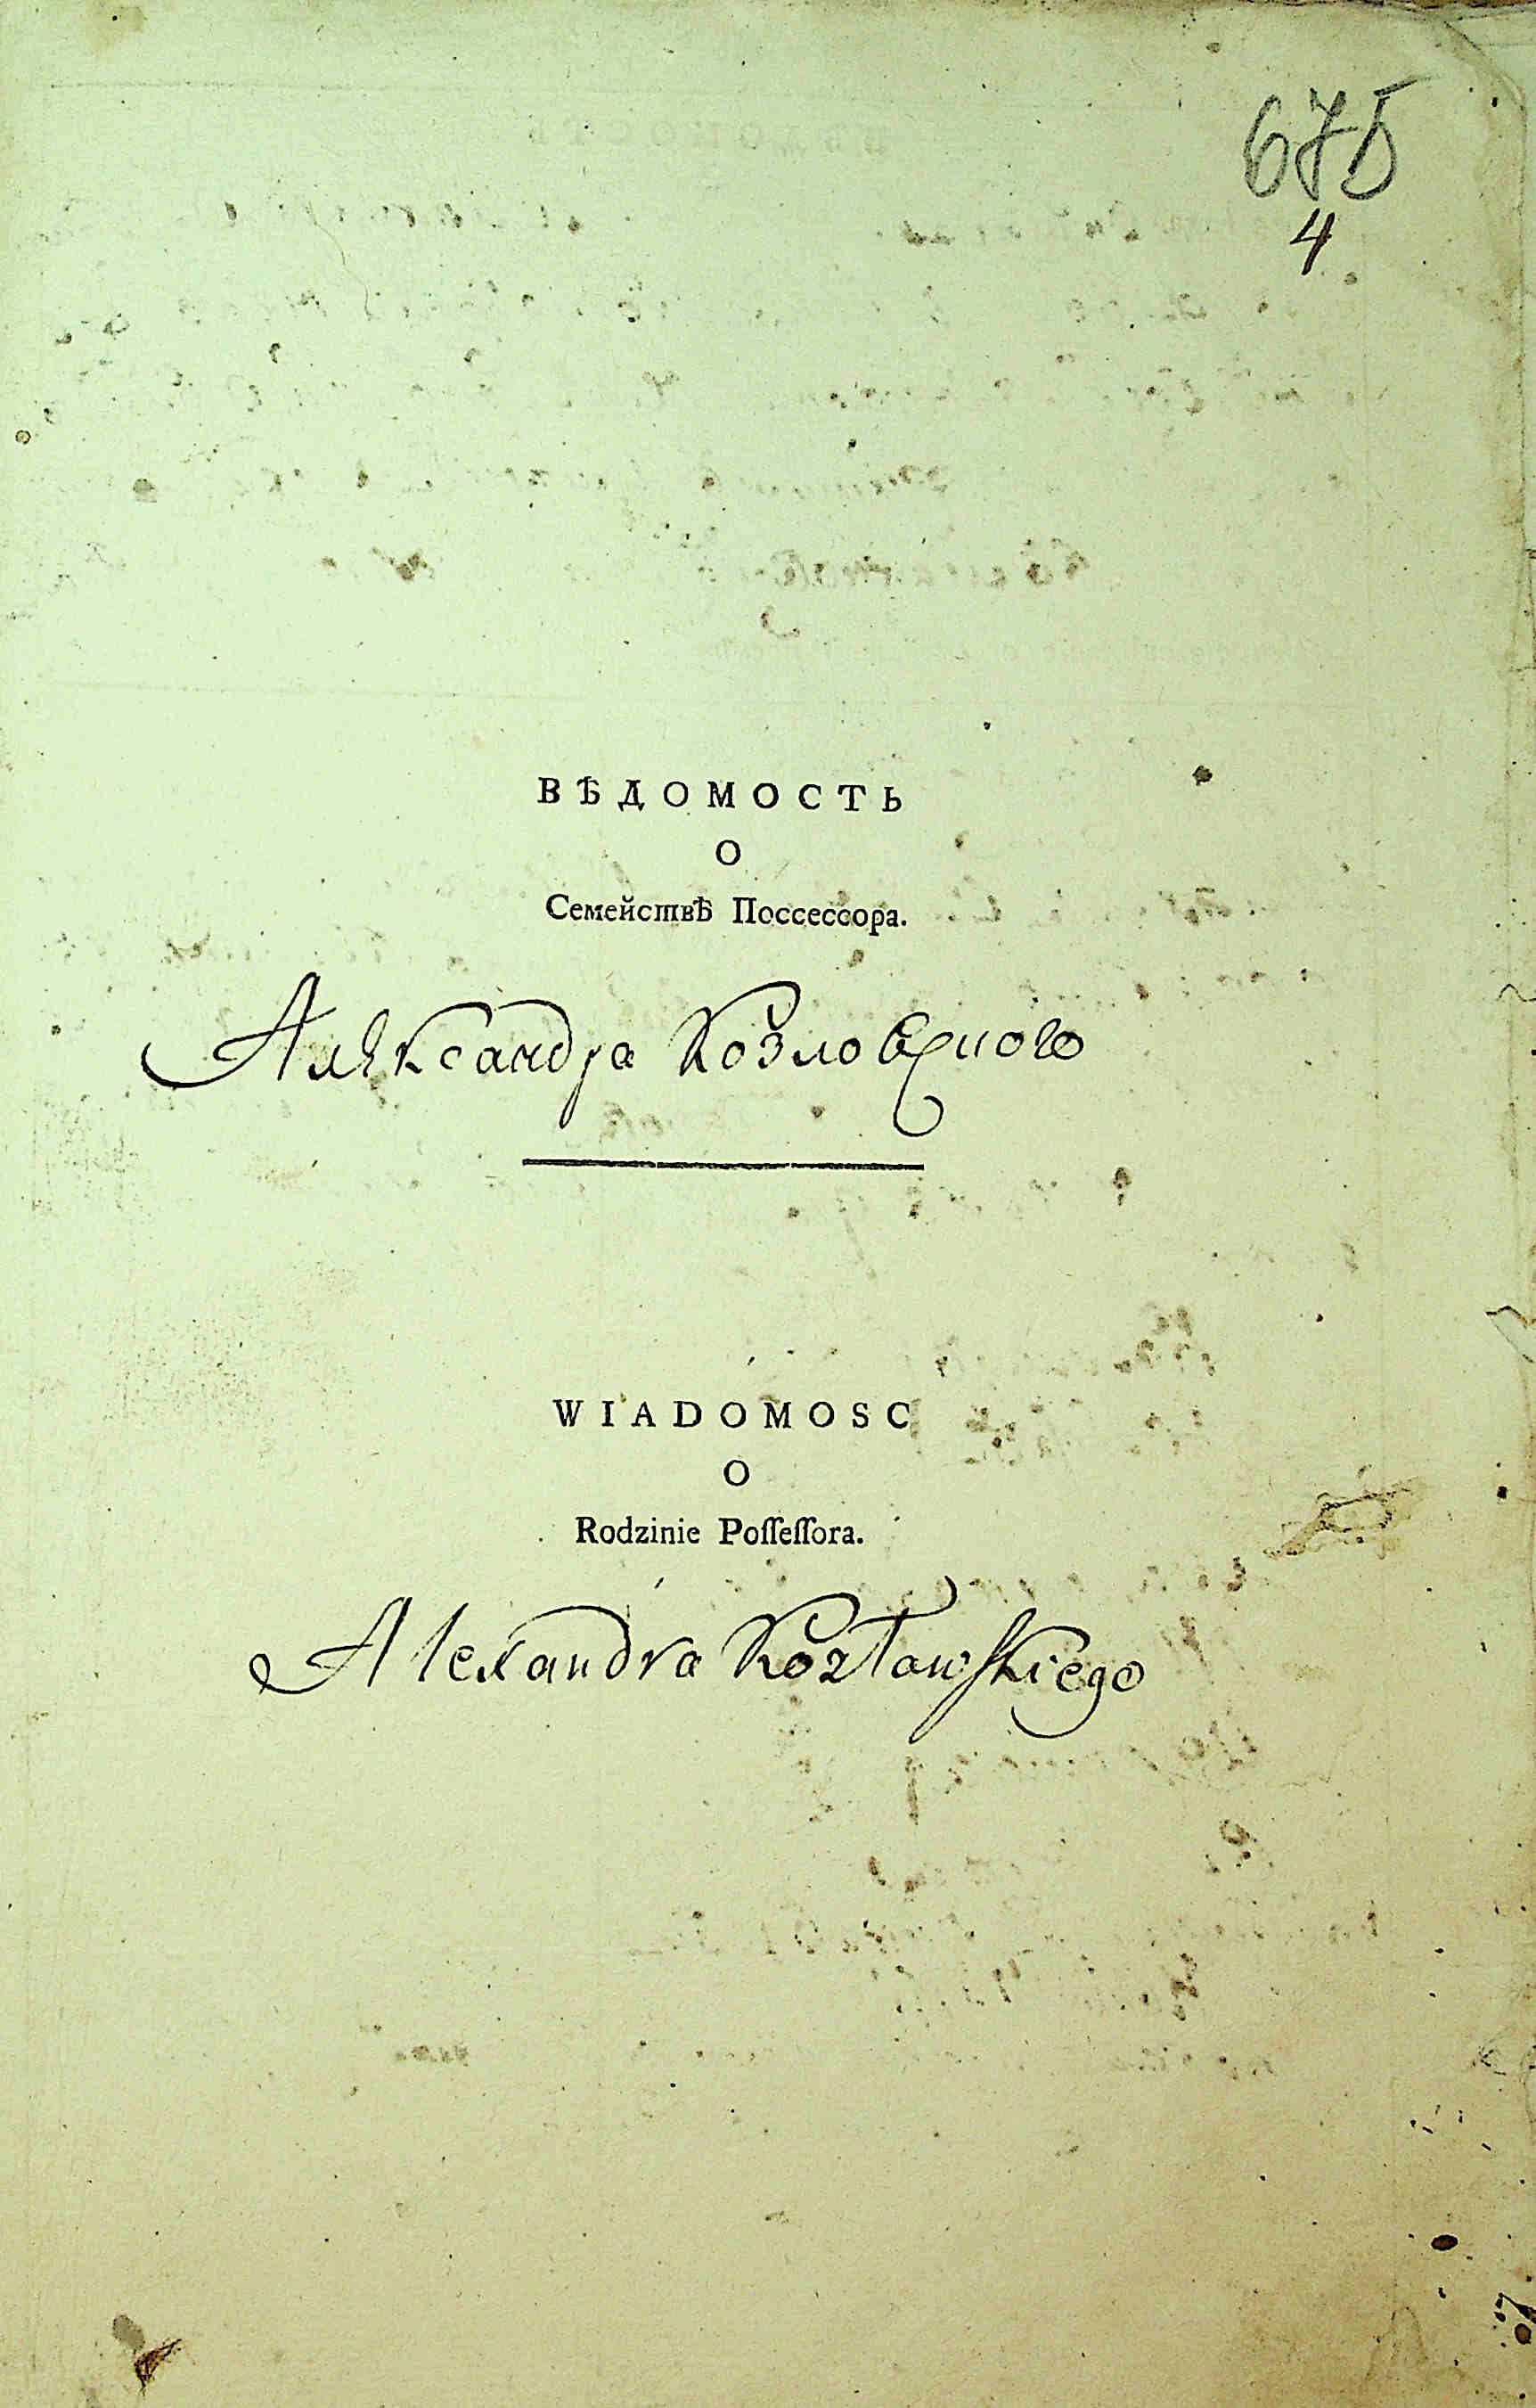 675
4
ВѢДОМОСТЬ
О
Семействѣ Поссессора.
Александра Козловского
WIADOMOSC
O
Rodzinie Poſſeſſora.
Alexandra Kozłowſkiego